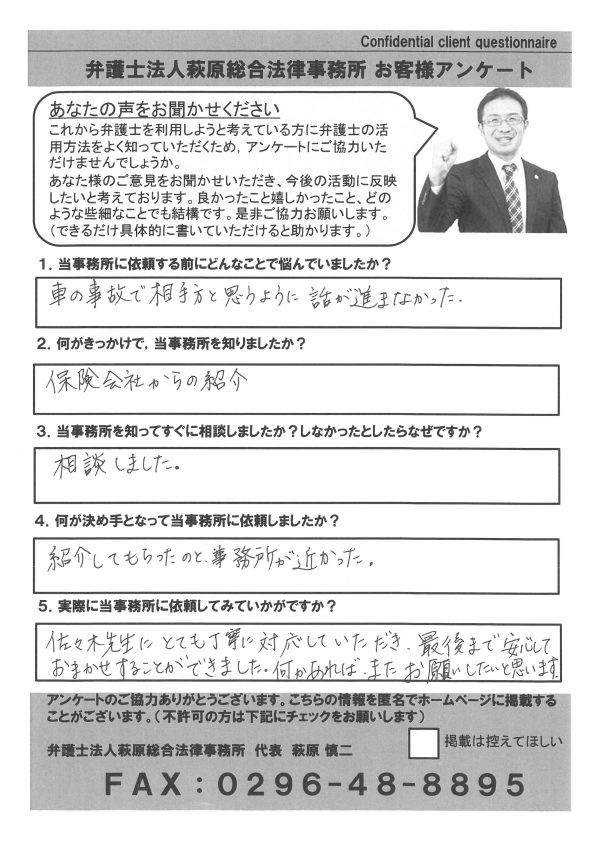 Confidential client questionnaire
弁護士法人萩原総合法律事務所 お客様アンケート
あなたの声をお聞かせください
これから弁護士を利用しようと考えている方に弁護士の活
用方法をよく知っていただくため，アンケートにご協力いた
だけませんでしょうか。
あなた様のご意見をお聞かせいただき、今後の活動に反映
したいと考えております。良かったこと嬉しかったこと、どの
ような些細なことでも結構です。是非ご協力お願いします。
（できるだけ具体的に書いていただけると助かります。）
１．当事務所に依頼する前にどんなことで悩んでいましたか？
車の事故で相手方と思うように話が進まなかった.
２．何がきっかけで，当事務所を知りましたか？
保険会社からの紹介
３．当事務所を知ってすぐに相談しましたか？しなかったとしたらなぜですか？
相談しました。
４．何が決め手となって当事務所に依頼しましたか？
紹介してもらったのと、事務所が近かった。
５．実際に当事務所に依頼してみていかがですか？
佐々木先生にとても丁寧に対応していただき、最後まで安心して
おまかせすることができました。何かあれば、またお願いしたいと思います。
アンケートのご協力ありがとうございます。こちらの情報を匿名でホームページに掲載する
ことがございます。（不許可の方は下記にチェックをお願いします）
掲載は控えてほしい
弁護士法人萩原総合法律事務所 代表 萩原 慎二
ＦＡＸ：０２９６－４８－８８９５